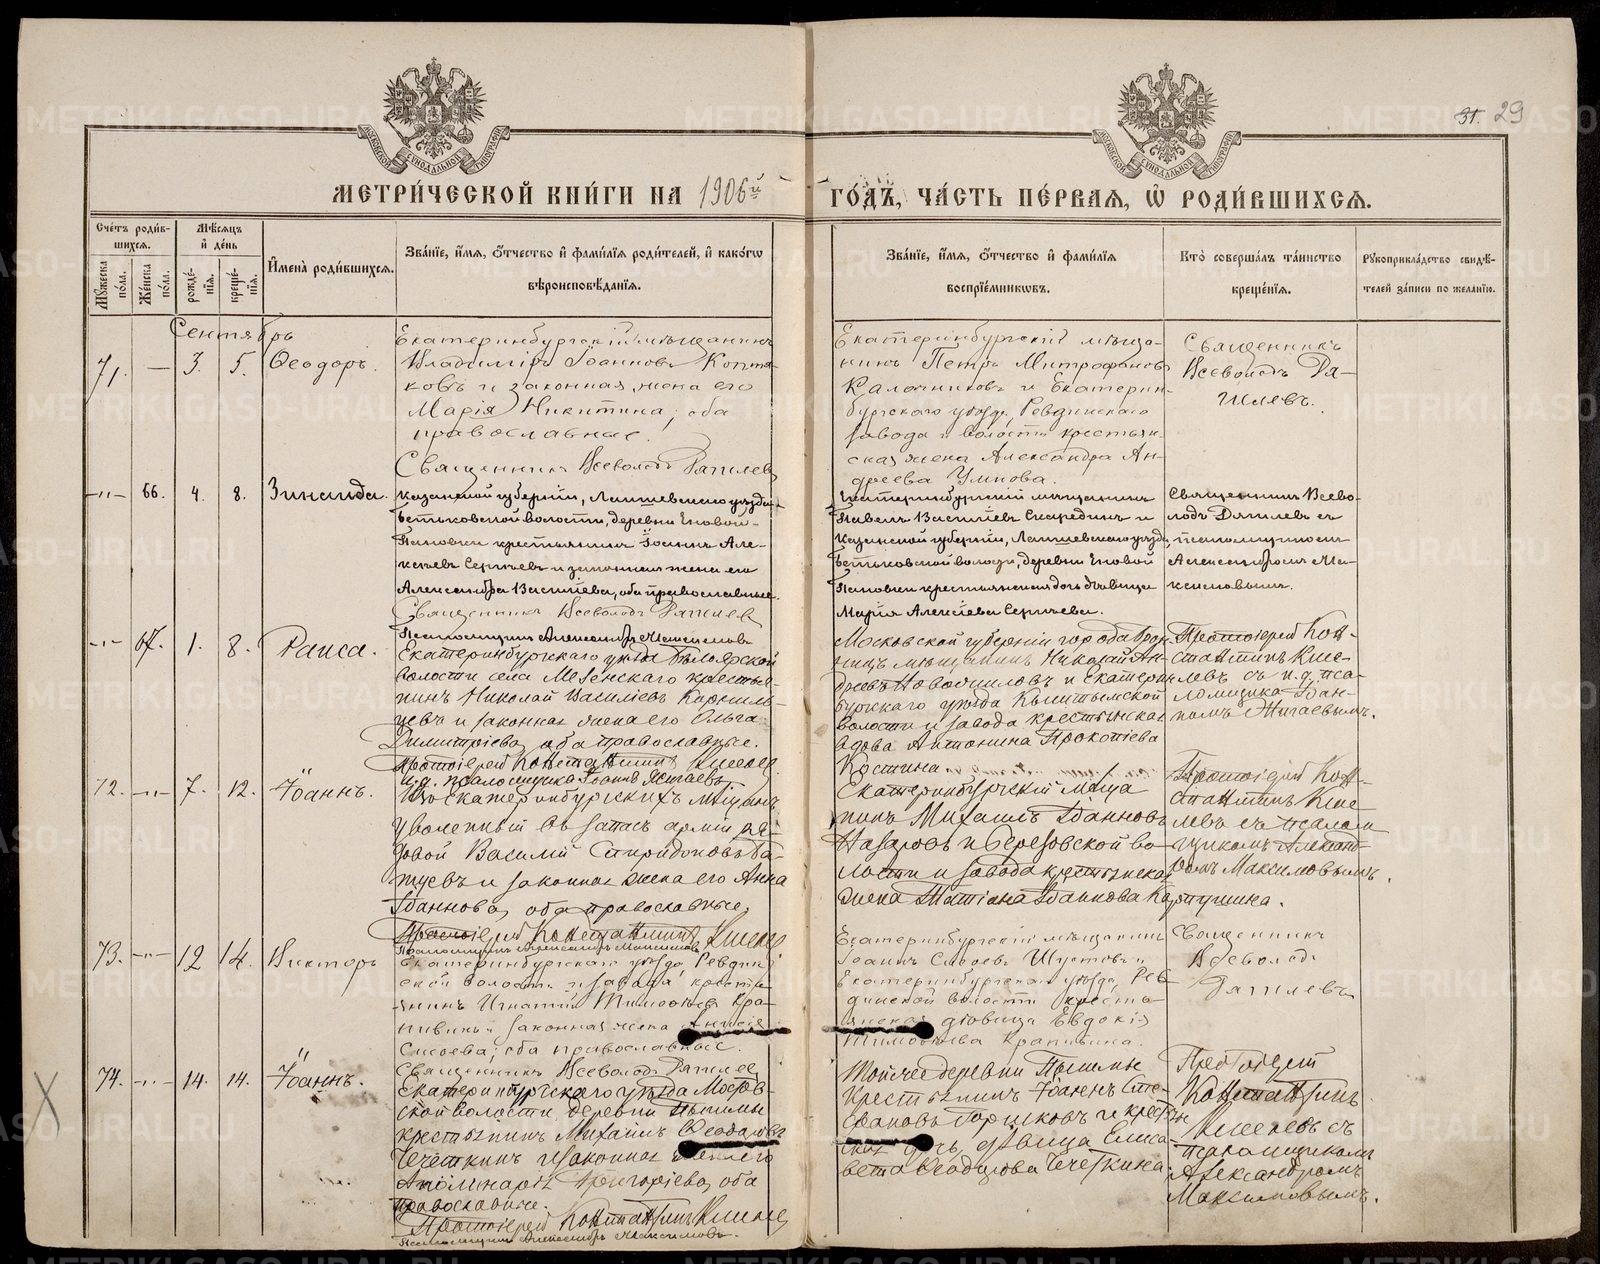 31. 29
МЕТРИ́ЧЕСКОЙ КНИ́ГИ НА 1906й ГО́ДЪ, ЧА́СТЬ ПЕ́РВАЯ, Ѡ РОДИ́ВШИХСЯ.
Сче́тъ роди́в-
шихся.
Мꙋжеска по́ла.
Же́нска по́ла.
Мѣ́сяцъ
и҆ де́нь
рожде́-
нїя.
креще́-
нїя.
И҆мена̀ роди́вшихся.
Зва́нїе, и҆́мя, ѻ҆́тчество и҆ фами́лїя роди́телей, и҆ како́гѡ
вѣроисповѣ́данїя.
Зва́нїе, и҆́мя, ѻ҆́тчество и҆ фами́лїя
воспрїе́мникѡвъ.
Кто̀ соверша́лъ та́инство
креще́нїя.
Рꙋкоприкла́дство свидѣ́-
телей за́писи по жела́нїю.
Сентябрь
71. — 3. 5. Ѳеодоръ.
Екатеринбургскій мѣщанинъ
Владиміръ Іоанновъ Коптя-
ковъ и законная жена его
Марія Никитина; оба
православные.
Священникъ Всеволодъ Дягилевъ
Екатеринбургскій мѣща-
нинъ Петръ Митрофановъ
Калочниковъ и Екатерин-
бургскаго уѣзда, Ревдинскаго
завода и волости крестьян-
ская жена Александра Ан-
дреева Умнова.
Священникъ
Всеволодъ Дя-
гилевъ.
-"- 66. 4. 8. Зинаида.
Казанской губерніи, Лаишевскаго уѣзда,
волости, деревни
крестьянинъ Іоаннъ Але-
ксѣевъ Сергѣевъ и законная жена его
Александра Васильева, оба православные.
Священникъ Всеволодъ Дягилевъ
Псаломщикъ Александръ Максимовъ
Екатеринбургскій мѣщанинъ
Павелъ Васильевъ и
Казанской губерніи, Лаишевскаго уѣзда,
волости, деревни
крестьянская дочь дѣвица
Марія Алексѣева Сергѣева.
Священникъ Всево-
лодъ Дягилевъ съ
псаломщикомъ
Александромъ Ма-
ксимовымъ.
-"- 67. 1. 8. Раиса.
Екатеринбургскаго уѣзда Бѣлоярской
волости села Мезенскаго крестья-
нинъ Николай Василіевъ Кориль-
цевъ и законная жена его Ольга
Димитріева, оба православные.
Протоіерей Константинъ
и.д. псаломщика Іоаннъ
Московской губерніи города Брон-
ницъ мѣщанинъ Николай Ан-
дреевъ и Екатерин-
бургскаго уѣзда Кыштымской
волости и завода крестьянская
вдова Антонина Прокопіева
Костина
Протоіерей Кон-
стантинъ
съ и.д. пса-
ломщика Іоан-
номъ
72. -"- 7. 12. Іоаннъ.
Изъ екатеринбургскихъ мѣщанъ
уволенный въ запасъ арміи ря-
довой Василій Спиридоновъ
и законная жена его Анна
Іоаннова, оба православные.
Протоіерей Константинъ
Псаломщикъ Александръ Максимовъ
Екатеринбургскій мѣща-
нинъ Михаилъ Іоанновъ
Назаровъ и Березовской во-
лости и завода крестьянская
жена Татіана Іоаннова Карпушина.
Протоіерей Кон-
стантинъ
съ псалом-
щикомъ Александ-
ромъ Максимовымъ.
73. -"- 12 14. Викторъ
Екатеринбургскаго уѣзда, Ревдин-
ской волости и завода крестья-
нинъ Игнатій Тимоѳеевъ Кра-
пивинъ и законная жена Анисія
Сысоева; оба православные.
Священникъ Всеволодъ Дягилевъ
Екатеринбургскій мѣщанинъ
Іоаннъ Сысоевъ Шустовъ и
Екатеринбургскаго уѣзда, Рев-
динской волости кресть-
янская дѣвица Евдокія
Тимоѳеева Крапивина.
Священникъ
Всеволодъ
Дягилевъ
74. -"- 14. 14. Іоаннъ.
Екатеринбургскаго уѣзда Мостов-
ской волости деревни Пышмы
крестьянинъ Михаилъ Ѳеодоровъ
Чечеткинъ и законная жена его
Аполинарія Григоріева, оба
православные.
Протоіерей Константинъ
Псаломщикъ Александръ Максимовъ.
Той же деревни Пышмы
крестьянинъ Іоаннъ Сте-
фановъ Горшковъ и крестьян-
ская дочь, дѣвица Елиса-
вета Ѳеодорова Чечеткина.
Протоіерей
Константинъ
съ
псаломщикомъ
Александромъ
Максимовымъ.